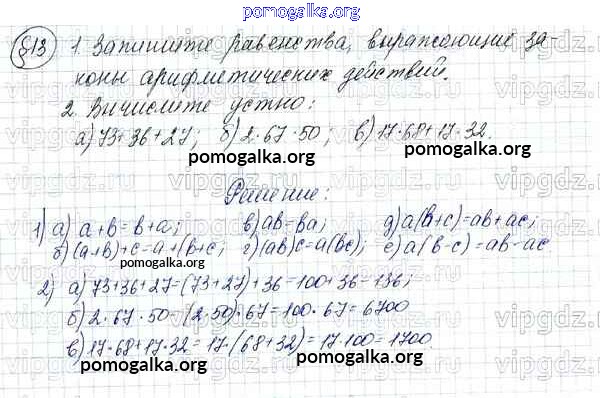 pomogalka.org
§13 1. Запишите равенства, выражающие за-
коны арифметических действий.
2. Вычислите устно:
а) 73+36+27; б) 2·67·50; в) 17·68+17·32.
pomogalka.org pomogalka.org
Решение:
1) а) a+b=b+a; в) ab=ba; д) a(b+c)=ab+ac;
б) (a+b)+c=a+(b+c; г) (ab)c=a(bc); е) a(b-c)=ab-ac
pomogalka.org
2) а) 73+36+27=(73+27)+36=100+36=136;
б) 2·67·50=(2·50)·67=100·67=6700
pomogalka.org
в) 17·68+17·32=17·(68+32)=17·100=1700.
pomogalka.org pomogalka.org